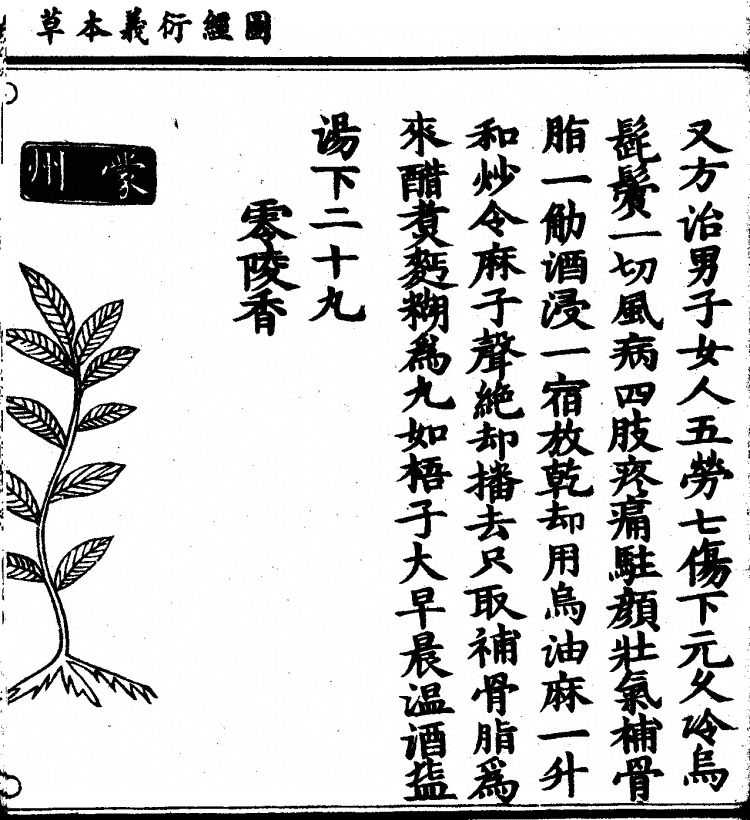 圖經衍義本草
又方治男子女人五勞七傷下元久冷烏
髭鬢一切風病四肢疼痛駐顔壯氣補骨
脂一觔酒浸一宿放乾却用烏油麻一升
和炒令麻子聲絶却播去只取補骨脂爲
末醋煮麪糊爲丸如梧子大早晨温酒盐
湯下二十丸
零陵香
蒙州